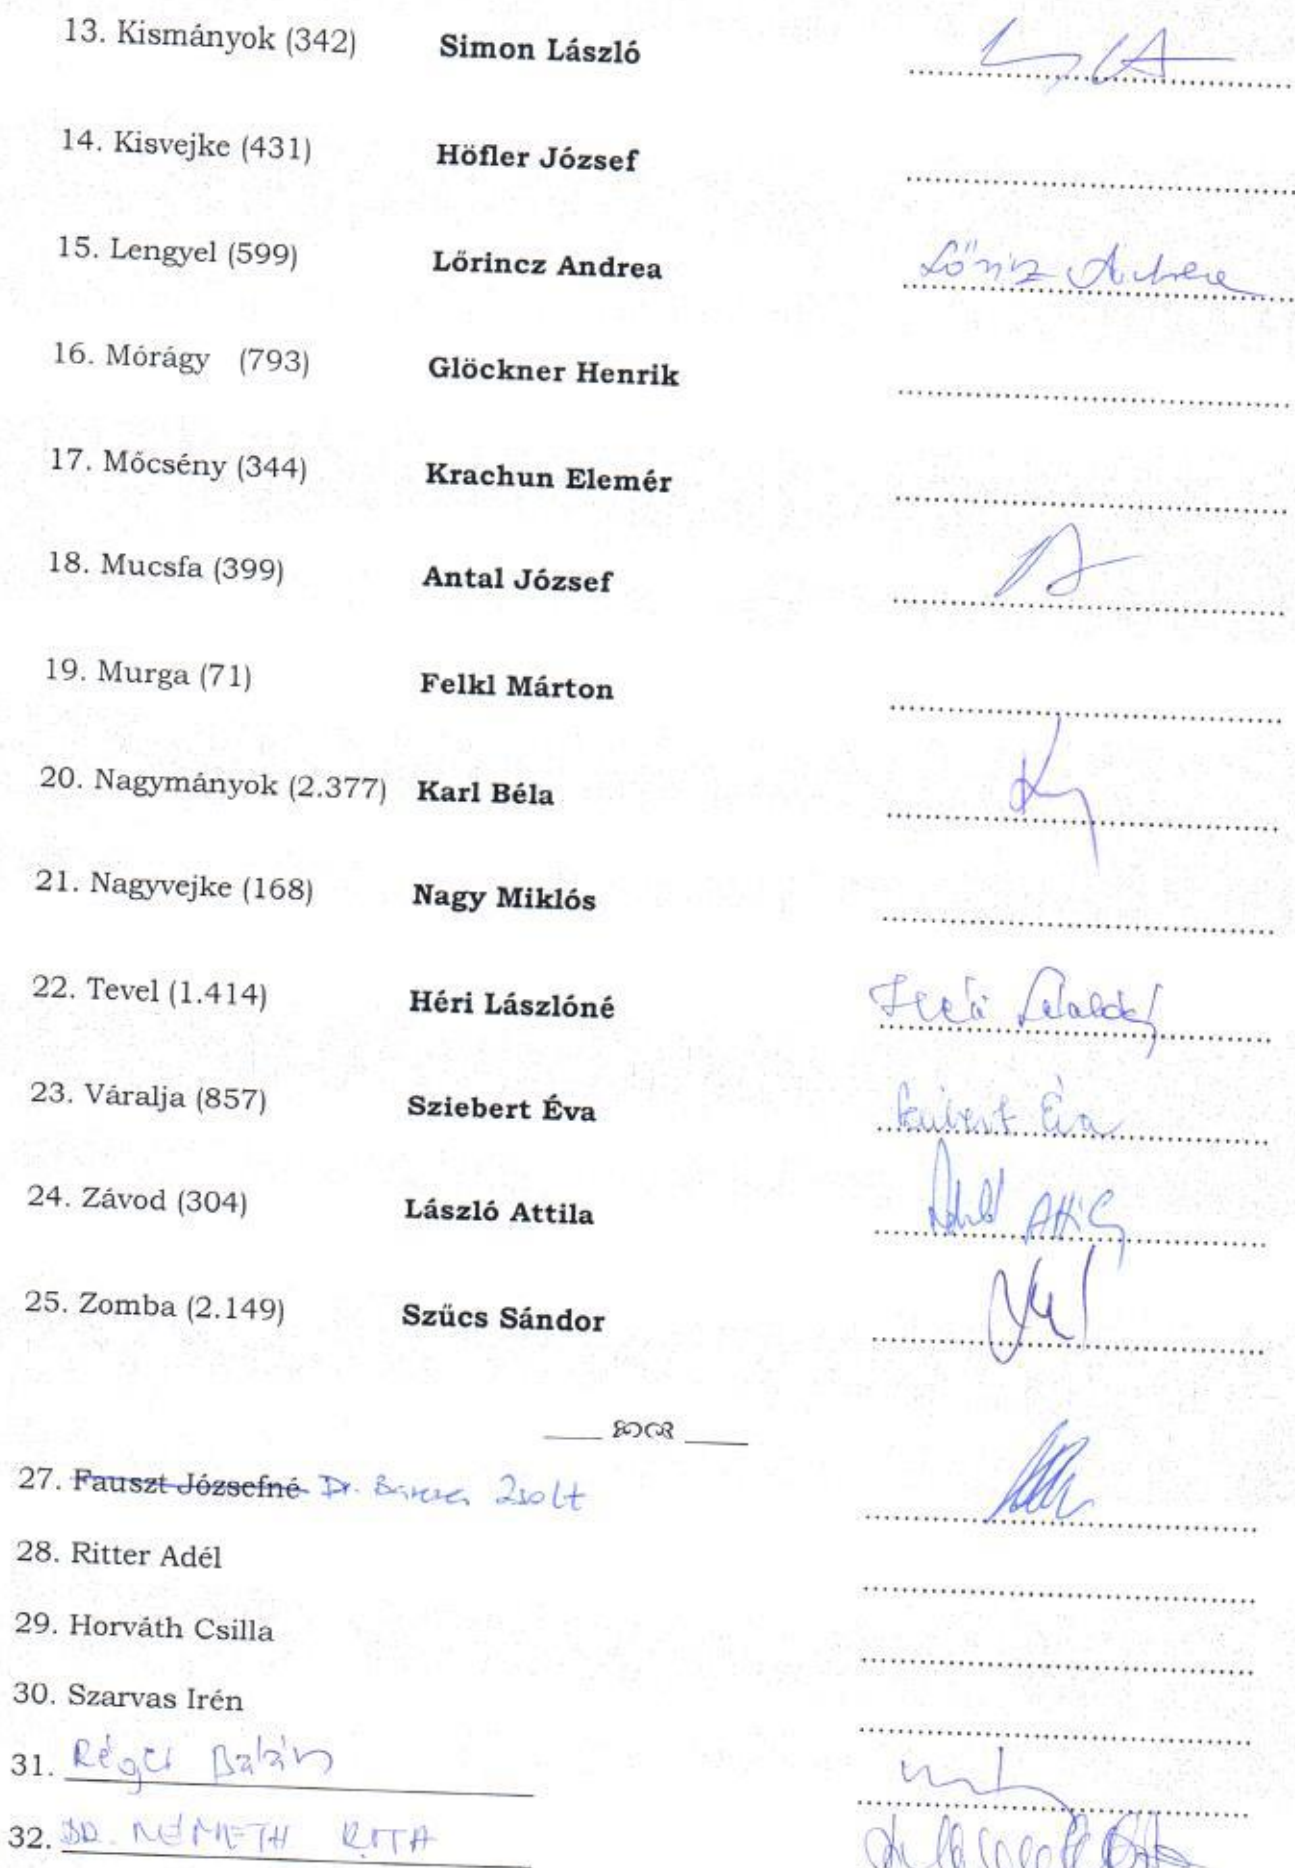 13. Kismányok (342) Simon László
14. Kisvejke (431) Höfler József
15. Lengyel (599) Lőrincz Andrea Lőrincz Andrea
16. Mórágy (793) Glöckner Henrik
17. Mőcsény (344) Krachun Elemér
18. Mucsfa (399) Antal József
19. Murga (71) Felkl Márton
20. Nagymányok (2.377) Karl Béla
21. Nagyvejke (168) Nagy Miklós
22. Tevel (1.414) Héri Lászlóné
23. Váralja (857) Sziebert Éva Sziebert Éva
24. Závod (304) László Attila László Attila
25. Zomba (2.149) Szűcs Sándor
27. Fauszt Józsefné Dr. Zsolt
28. Ritter Adél
29. Horváth Csilla
30. Szarvas Irén
31. Balázs
32. DR. NÉMETH RITA